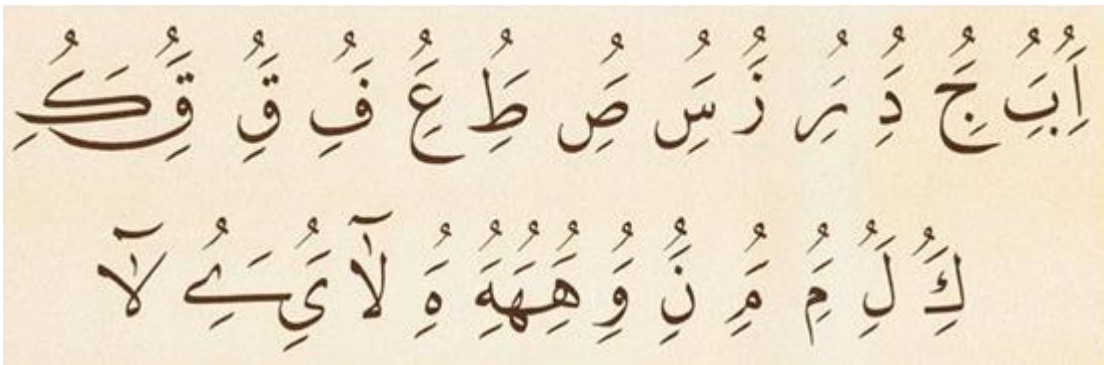 اَِ بَُبَُِ جَُِ دَُِ رَُِ زَُ سَُِ صَُِ طَُِ عَُِ فَُِ قَُِ قَُِ كَُِ
كَُِ لَُِ مَُِ مَُِ نَُِ وَُِ هَُِهَُِهَُِ هَُِ لآ يَُِ ےَُِ لآ